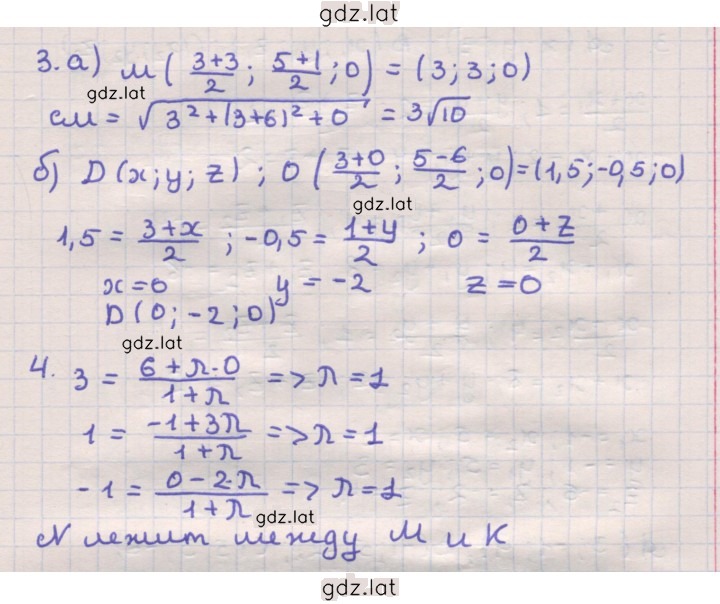 gdz.lat
3. а) M ( 3+3/2 ; 5+1/2 ; 0 ) = (3; 3; 0)
gdz.lat
CM = √(3² + (3+6)² + 0) = 3√10
б) D (x; y; z) ; O ( 3+0/2 ; 5-6/2 ; 0) = (1,5; -0,5; 0)
gdz.lat
1,5 = 3+x/2 ; -0,5 = 1+y/2 ; 0 = 0+z/2
x=0 y = -2 z = 0
D (0; -2; 0)
gdz.lat
4. 3 = 6+λ·0/1+λ => λ = 1
1 = -1+3λ/1+λ => λ = 1
-1 = 0-2·λ/1+λ => λ = 1
gdz.lat
N лежит между M и K
gdz.lat